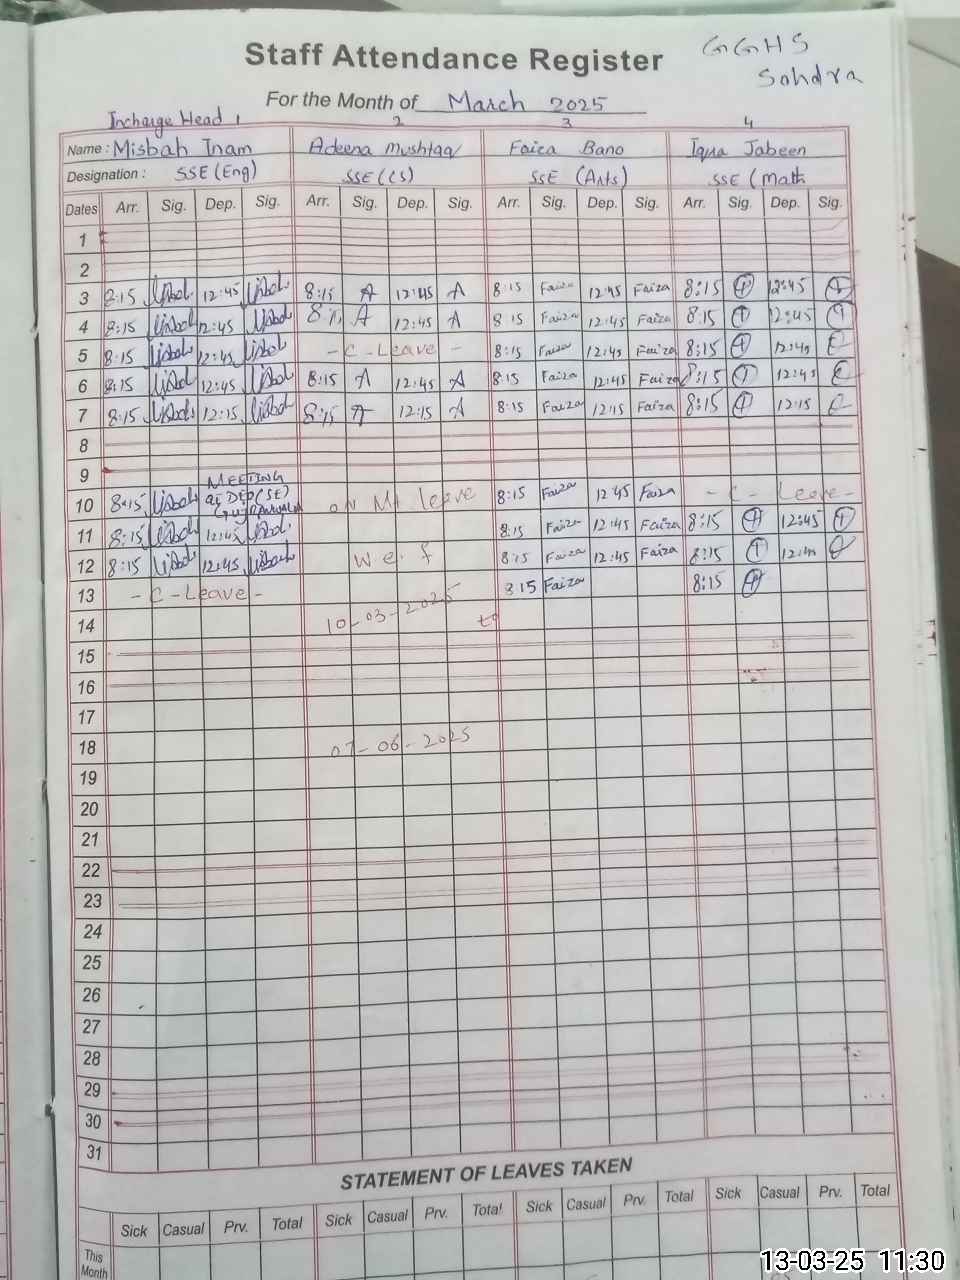 Staff Attendance Register
GGHS
Sohdra
For the Month of March 2025
Incharge Head 1 2 3 4
Name : Misbah Inam Adeena Mushtaq Faiza Bano Iqra Jabeen
Designation : SSE (Eng) SSE (CS) SSE (Arts) SSE (Math
Dates Arr. Sig. Dep. Sig. Arr. Sig. Dep. Sig. Arr. Sig. Dep. Sig. Arr. Sig. Dep. Sig.
1
2
3 8:15 12:45 8:15 A 12:45 A 8:15 Faiza 12:45 Faiza 8:15 12:45
4 8:15 12:45 A 12:45 A 8:15 Faiza 12:45 Faiza 8:15 12:45
5 8:15 12:45 - C - Leave - 8:15 Faiza 12:45 Faiza 8:15 12:45
6 8:15 12:45 8:15 A 12:45 A 8:15 Faiza 12:45 Faiza 8:15 12:45
7 8:15 12:15 8:15 A 12:15 A 8:15 Faiza 12:15 Faiza 8:15 12:15
8
9
MEETING
10 8:15 at DEO (SE) on Mt. leave 8:15 Faiza 12:45 Faiza - C - Leave -
11 8:15 12:45 8:15 Faiza 12:45 Faiza 8:15 12:45
12 8:15 12:45 w.e.f 8:15 Faiza 12:45 Faiza 8:15 12:45
13 - C - Leave - 8:15 Faiza 8:15
14 10-03-2025 to
15
16
17
18 07-06-2025
19
20
21
22
23
24
25
26
27
28
29
30
31
STATEMENT OF LEAVES TAKEN
Sick Casual Prv. Total Sick Casual Prv. Total Sick Casual Prv. Total Sick Casual Prv. Total
This
Month
13-03-25 11:30